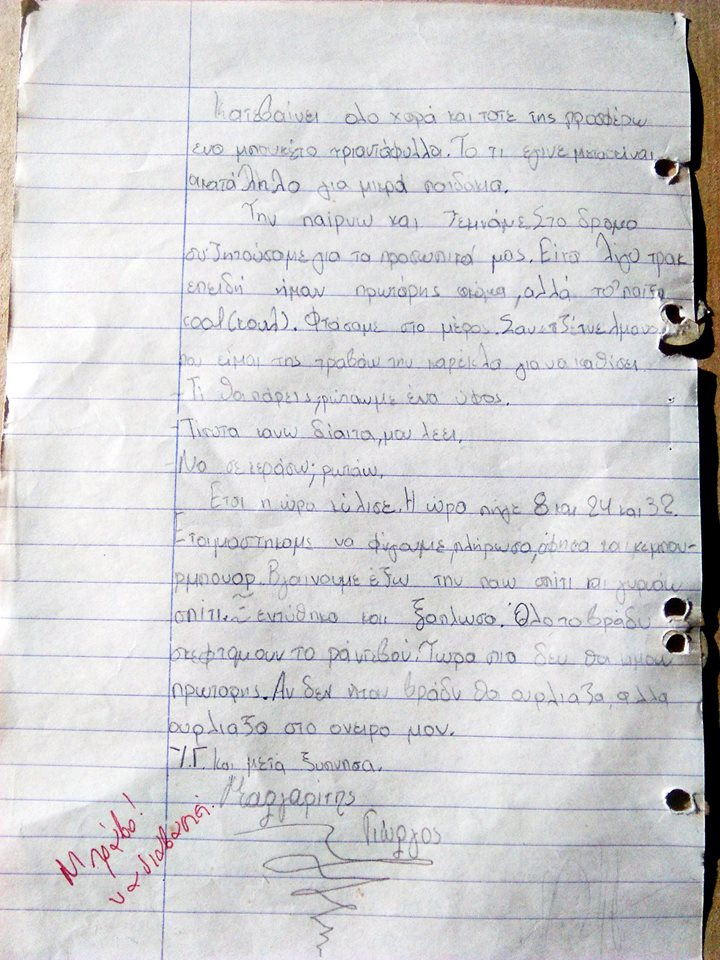 Κατεβαίνει ολο χαρά και τοτε της προσφέρω
ενα μπουκέτο τριαντάφυλλα. Το τι έγινε μετα είναι
ακατάλληλο για μικρά παιδακια.
Την παίρνω και Στο δρομο
συζητούσαμε για τα προσωπικά μας. Είχα λίγο τρακ
επειδή ήμουν πρωτάρης ακόμα, αλλά το 'παιξα
cool (κουλ). Φτάσαμε στο μέρος. Σαν
που είμαι της τραβάω την καρεκλα για να καθίσει.
-Τι θα πάρεις; ρώταω με ένα ύφος.
-Τιποτα κανω δίαιτα, μου λεει.
-Να σε κεράσω; ρωτάω.
Ετσι η ώρα κύλισε. Η ώρα πήγε 8 και 24 και 32.
Ετοιμαστηκαμε να φύγουμε, πλήρωσα, άφησα και
πουρμπουαρ. Βγαινουμε έξω την παω σπίτι και γυρνάω
σπίτι. Ξεντύθηκα και ξαπλωσα. Όλο το βράδυ
σκεφτόμουν το ράντεβού. Τωρα πια δεν θα ημουν
πρωταρης. Αν δεν ηταν βράδυ θα ουρλιαζα, αλλα
ουρλιαξα στο ονειρο μου.
Υ.Γ. Και μετά ξυπνησα.
Μαργαρίτης
Γιώργος
Μπράβο!
να διαβαστεί.